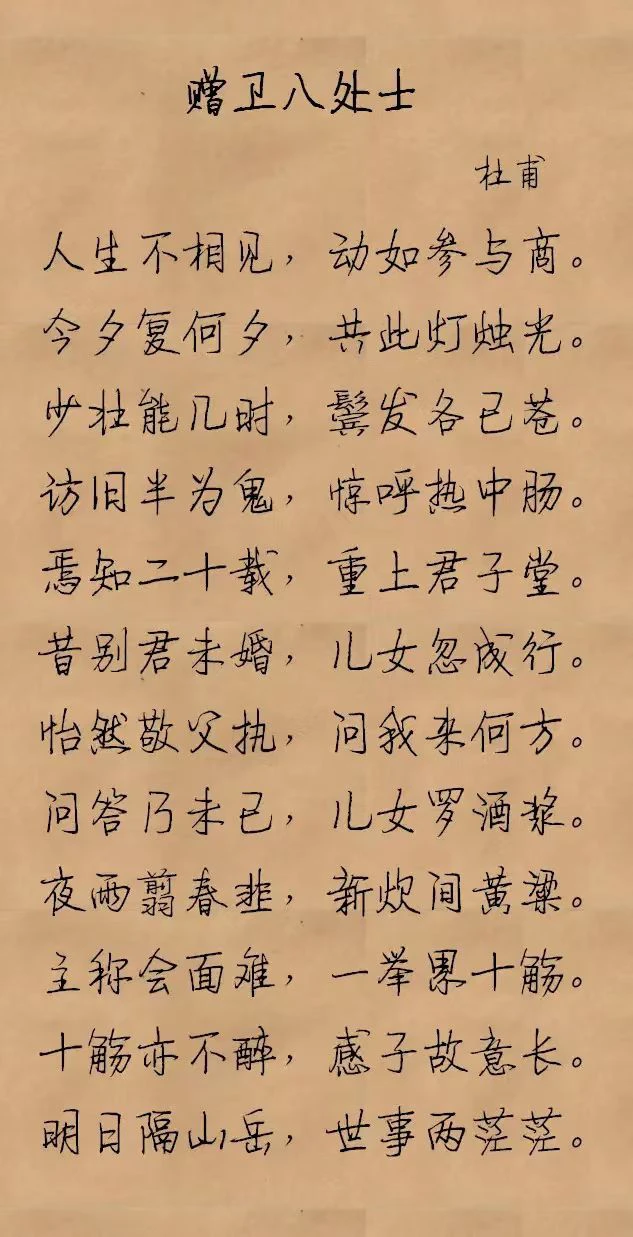 赠卫八处士
杜甫
人生不相见，动如参与商。
今夕复何夕，共此灯烛光。
少壮能几时，鬓发各已苍。
访旧半为鬼，惊呼热中肠。
焉知二十载，重上君子堂。
昔别君未婚，儿女忽成行。
怡然敬父执，问我来何方。
问答乃未已，儿女罗酒浆。
夜雨翦春韭，新炊间黄粱。
主称会面难，一举累十觞。
十觞亦不醉，感子故意长。
明日隔山岳，世事两茫茫。